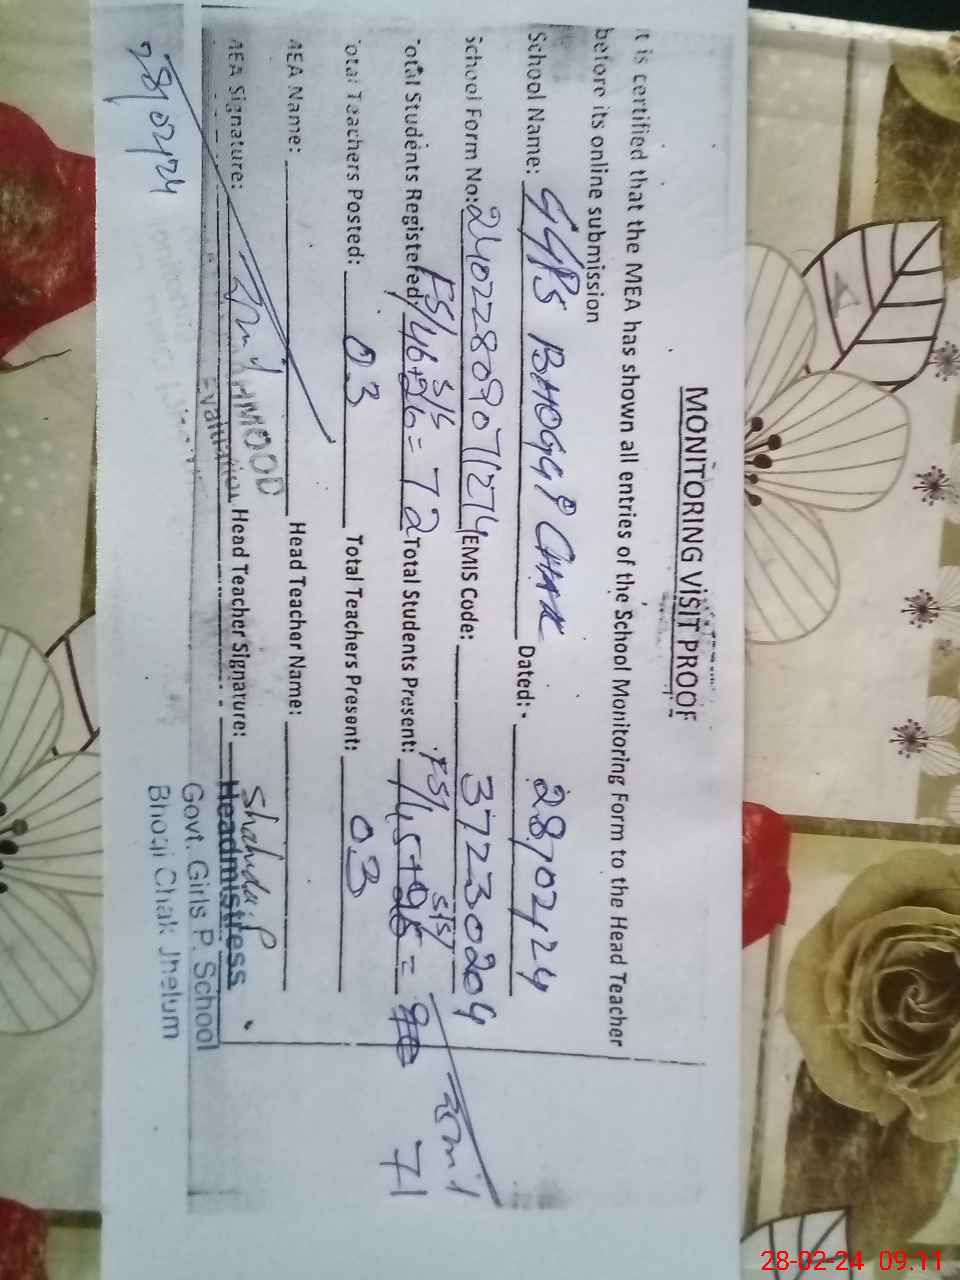 MONITORING VISIT PROOF
It is certified that the MEA has shown all entries of the School Monitoring Form to the Head Teacher
before its online submission
School Name: GGPS BHOGGI CHAK Dated:- 28/02/24
School Form No: 24022809071274 EMIS Code: 37230204
FS/ S/S FS/ S/S/
Total Students Registered/46+26=72 Total Students Present: /45+26= 71
Total Teachers Posted: 03 Total Teachers Present: 03
MEA Name: Head Teacher Name:
MEA Signature: Head Teacher Signature:
28/02/24
Headmistress
Govt. Girls P. School
Bhogi Chak Jhelum
28-02-24 09:11